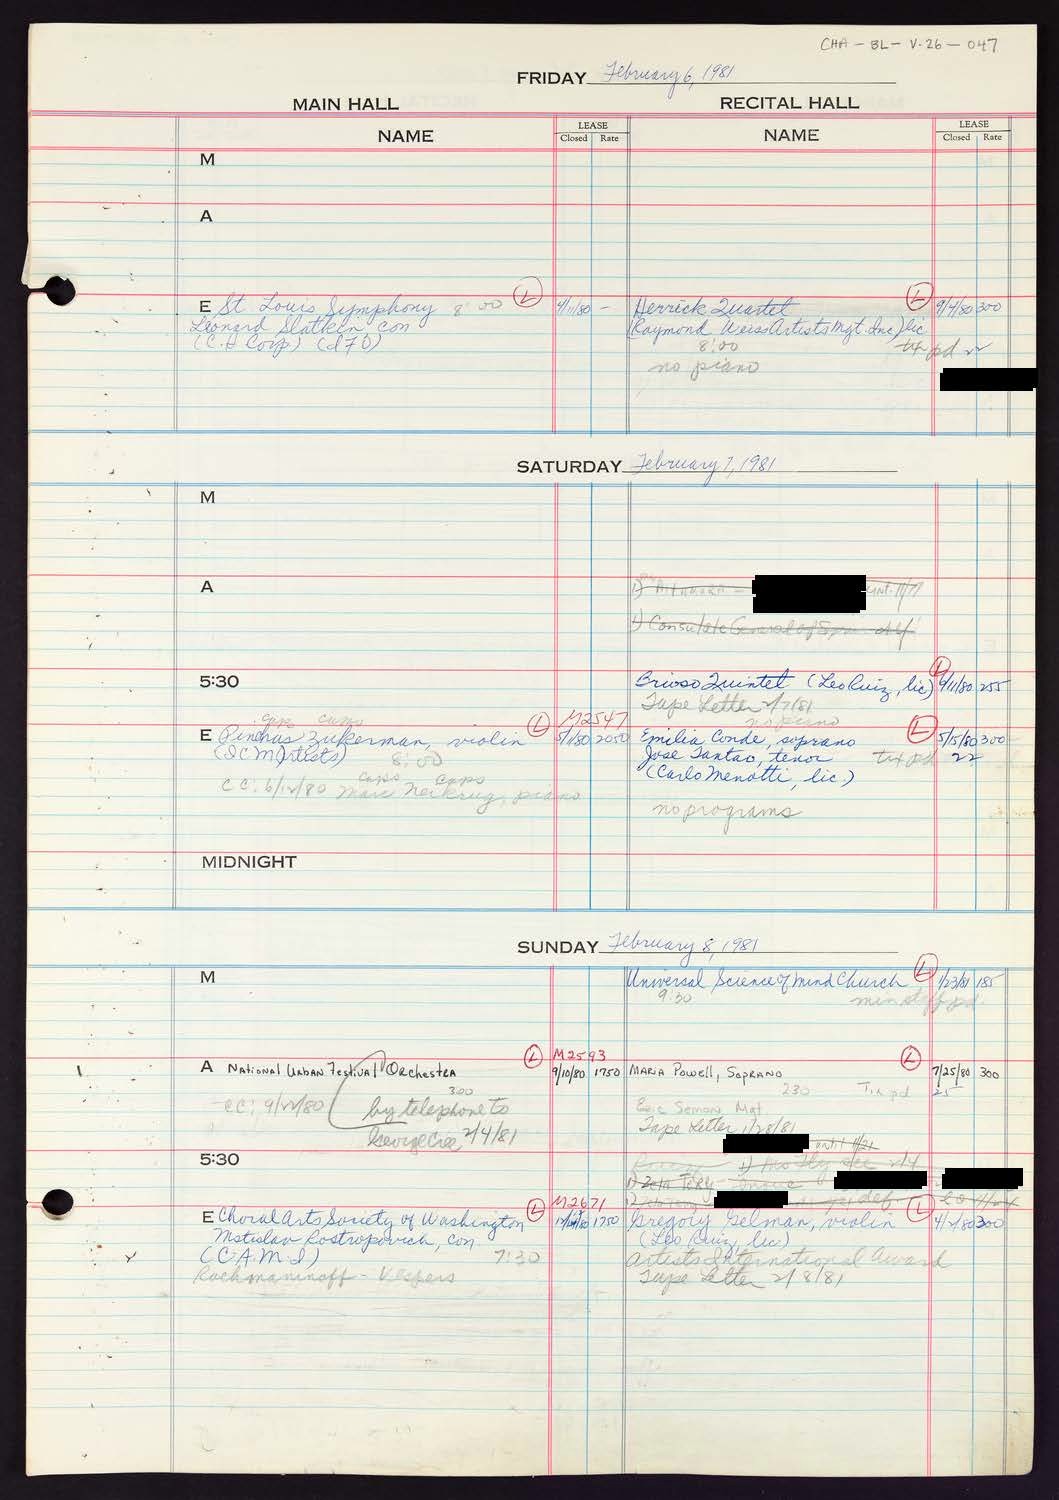 CHA - BL - V.26 - 047
FRIDAY February 6, 1981
MAIN HALL
RECITAL HALL
NAME
LEASE
Closed Rate
NAME
LEASE
Closed Rate
M
A
E St. Louis Symphony 8:00 L 9/11/80 -
Leonard Slatkin con
(C.H Corp) (d70)
Herrick Quartet L 9/4/80 300
(Raymond Weiss Artists Mgt. Inc) lic
8:00 tix pd 22
no piano
SATURDAY February 7, 1981
M
A
1) until 11/7
1) Consulate General of Spain def
5:30
Brioso Quintet (Leo Ruiz, lic) L 9/11/80 255
Tape Letter 2/7/81
no piano
cum cums
L M2547
E Pinchas Zukerman, violin 5/1/80 2050
(ICM Artists) 8:00
caps caps
CC: 6/12/80 Marc Neikrug, piano
Emilia Conde, soprano L 5/5/80 300
José Tantao, tenor tix pd 22
(Carlo Menotti, lic.)
no programs
MIDNIGHT
SUNDAY February 8, 1981
M
Universal Science of Mind Church L 1/23/81 185
9:30 min staff pd.
L M2593
A National Urban Festival Orchestra 9/10/80 1750
300
CC: 9/22/80 by telephone to
George Cree 2/4/81
Maria Powell, Soprano L 7/25/80 300
230 Tix pd 25
Eric Semon Mgt
Tape Letter 1/28/81
until 11/21
5:30
1) Mostly see 2/4
1) Zeta
2) def.
L M2671
E Choral Arts Society of Washington 1750
Mstislav Rostropovich, con.
(C.A.M.I) 7:30
Rachmaninoff - Vespers
Gregory Gelman, violin L 4/2/80 300
(Leo Ruiz, lic)
Artists International Award
Tape Letter 2/8/81